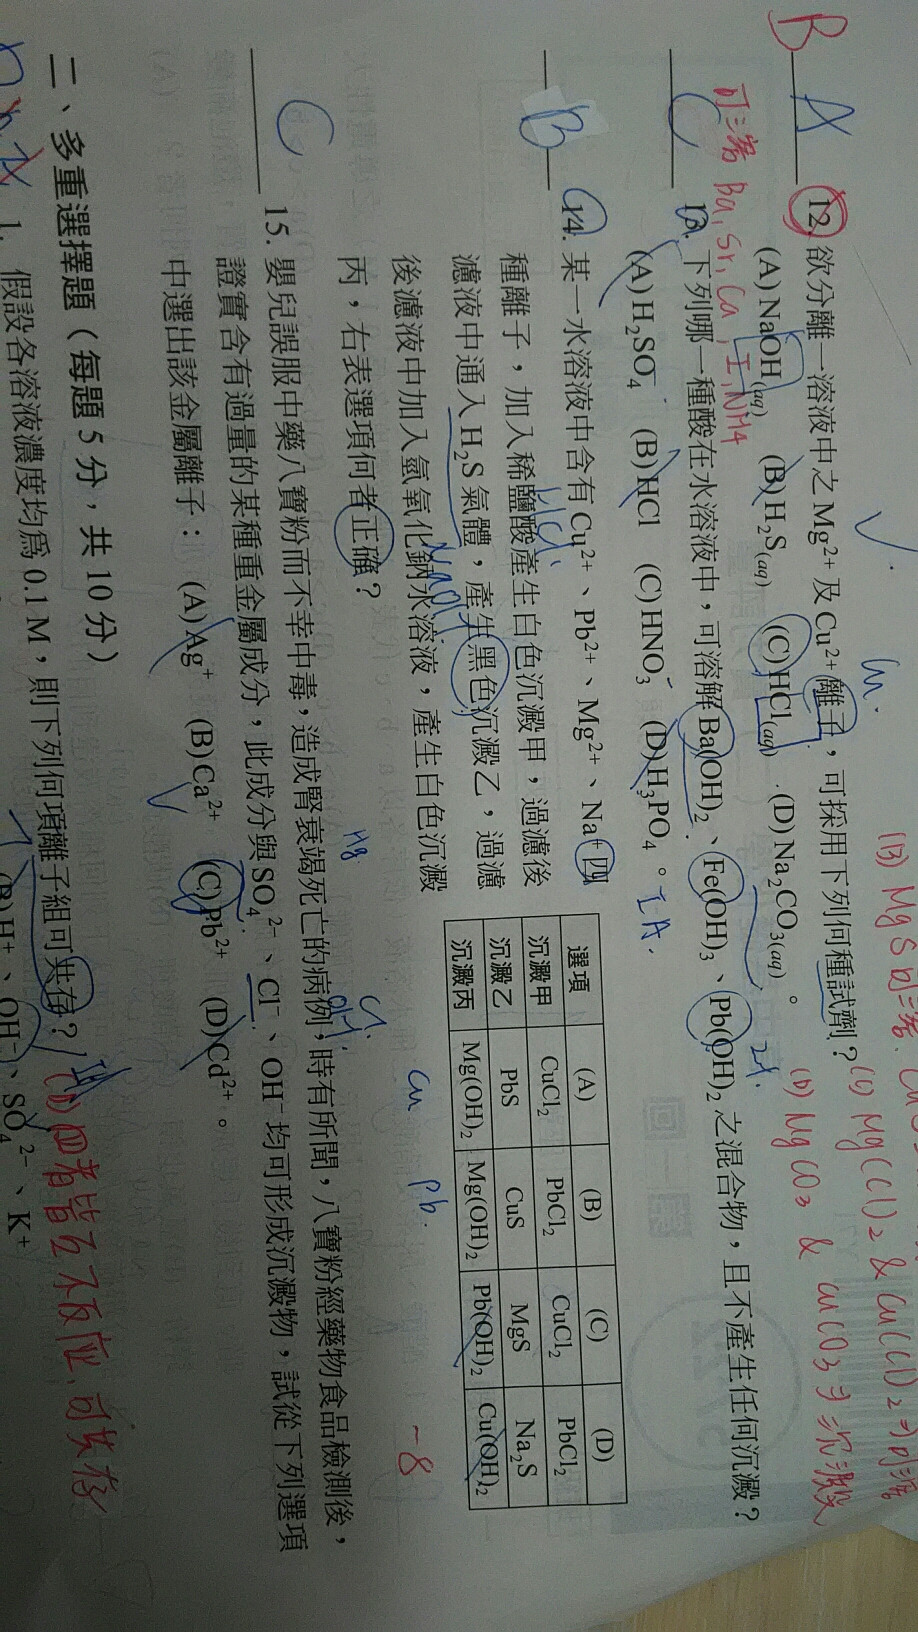 B A 12. 欲分離一溶液中之Mg²⁺及Cu²⁺離子，可採用下列何種試劑？
(A) NaOH(aq) (B) H₂S(aq) (C) HCl(aq) (D) Na₂CO₃(aq)。
可溶 Ba, Sr, Ca, IA, NH4
C 13. 下列哪一種酸在水溶液中，可溶解Ba(OH)₂、Fe(OH)₃、Pb(OH)₂之混合物，且不產生任何沉澱？
(A) H₂SO₄ (B) HCl (C) HNO₃ (D) H₃PO₄。 IA.
B 14. 某一水溶液中含有Cu²⁺、Pb²⁺、Mg²⁺、Na⁺四
種離子，加入稀鹽酸產生白色沉澱甲，過濾後
濾液中通入H₂S氣體，產生黑色沉澱乙，過濾
後濾液中加入氫氧化鈉水溶液，產生白色沉澱
丙，右表選項何者正確？
選項 (A) (B) (C) (D)
沉澱甲 CuCl₂ PbCl₂ CuCl₂ PbCl₂
沉澱乙 PbS CuS MgS Na₂S
沉澱丙 Mg(OH)₂ Mg(OH)₂ Pb(OH)₂ Cu(OH)₂
Cu Pb. -8
C 15. 嬰兒誤服中藥八寶粉而不幸中毒，造成腎衰竭死亡的病例，時有所聞，八寶粉經藥物食品檢測後，
證實含有過量的某種重金屬成分，此成分與SO₄²⁻、Cl⁻、OH⁻均可形成沉澱物，試從下列選項
中選出該金屬離子： (A) Ag⁺ (B) Ca²⁺ (C) Pb²⁺ (D) Cd²⁺。
二、多重選擇題（每題5分，共10分）
1. 假設各溶液濃度均為0.1 M，則下列何項離子組可共存？
(D) 四者皆不反應，可共存
(B) H⁺、OH⁻、SO₄²⁻、K⁺